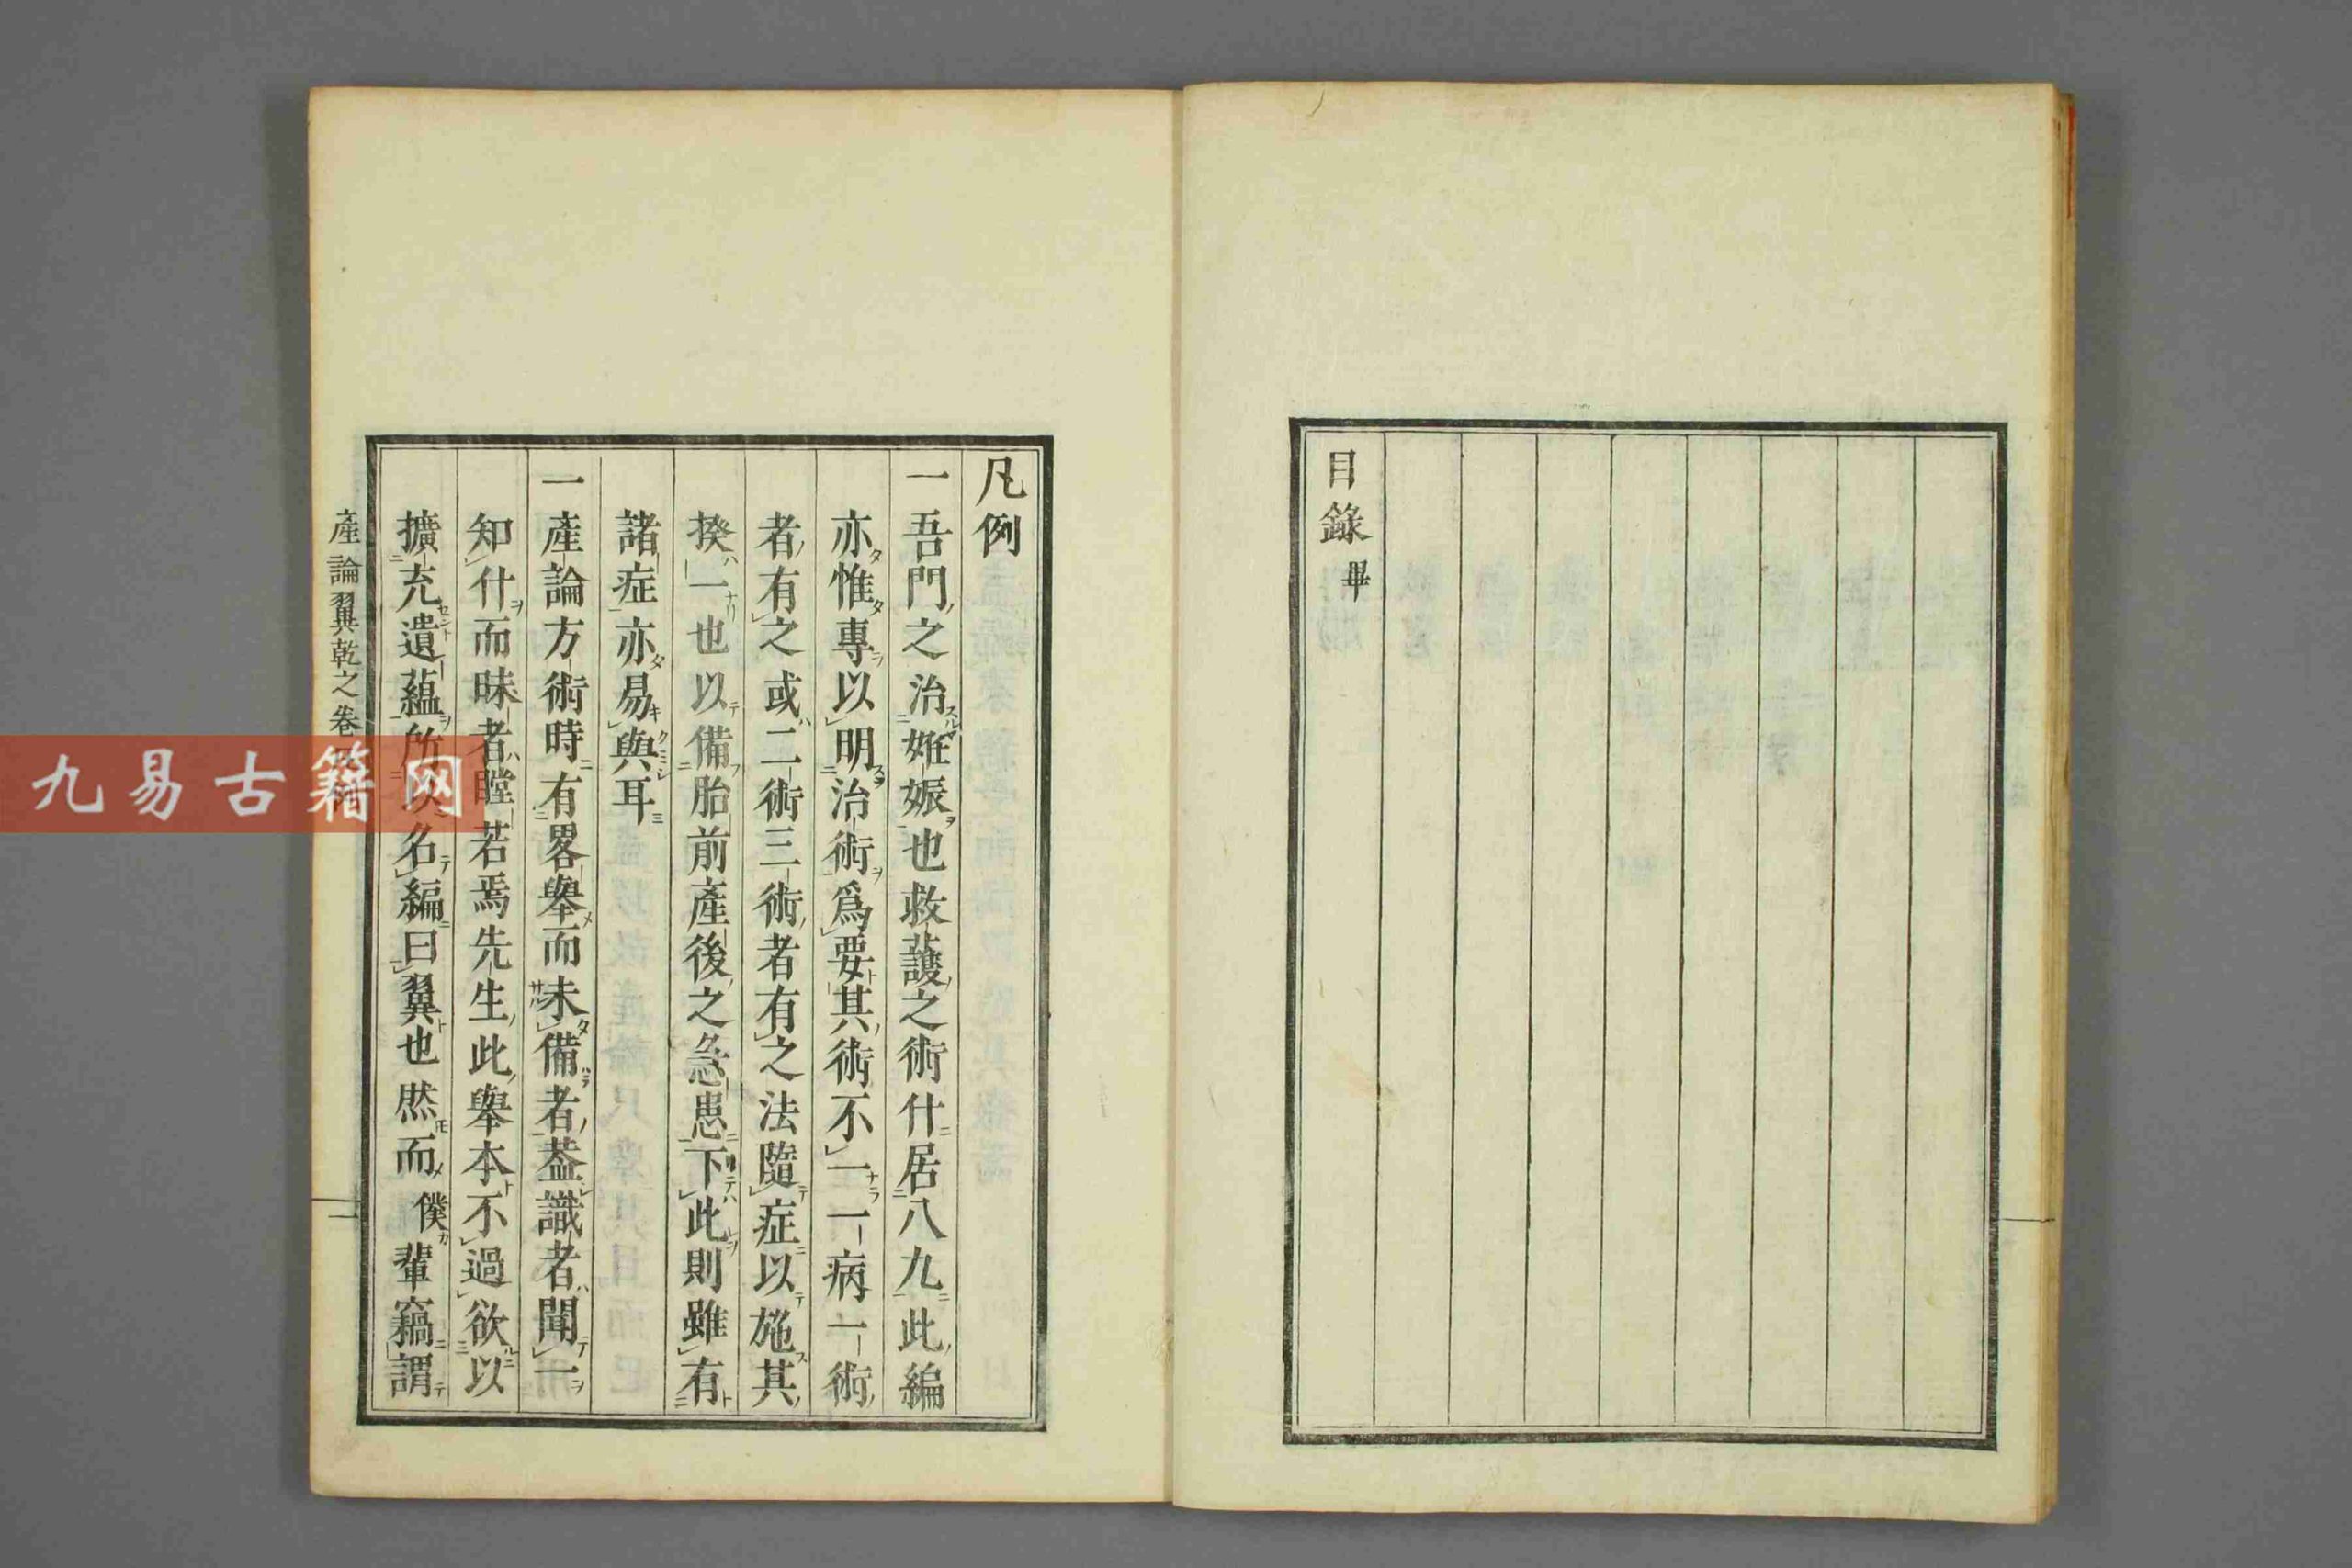 目錄畢
凡例
一吾門之治姙娠也救護之術什居八九此編
亦惟專以明治術爲要其術不一一病一術
者有之或二術三術者有之法隨症以施其
揆一也以備胎前產後之急患下此則雖有
諸症亦易與耳
一產論方術時有畧舉而未備者葢識者聞一
知什而昧者瞠若焉先生此舉本不過欲以
擴充遺蘊所以名編曰翼也然而僕輩竊謂
產論翼乾之卷
一
九易古籍网